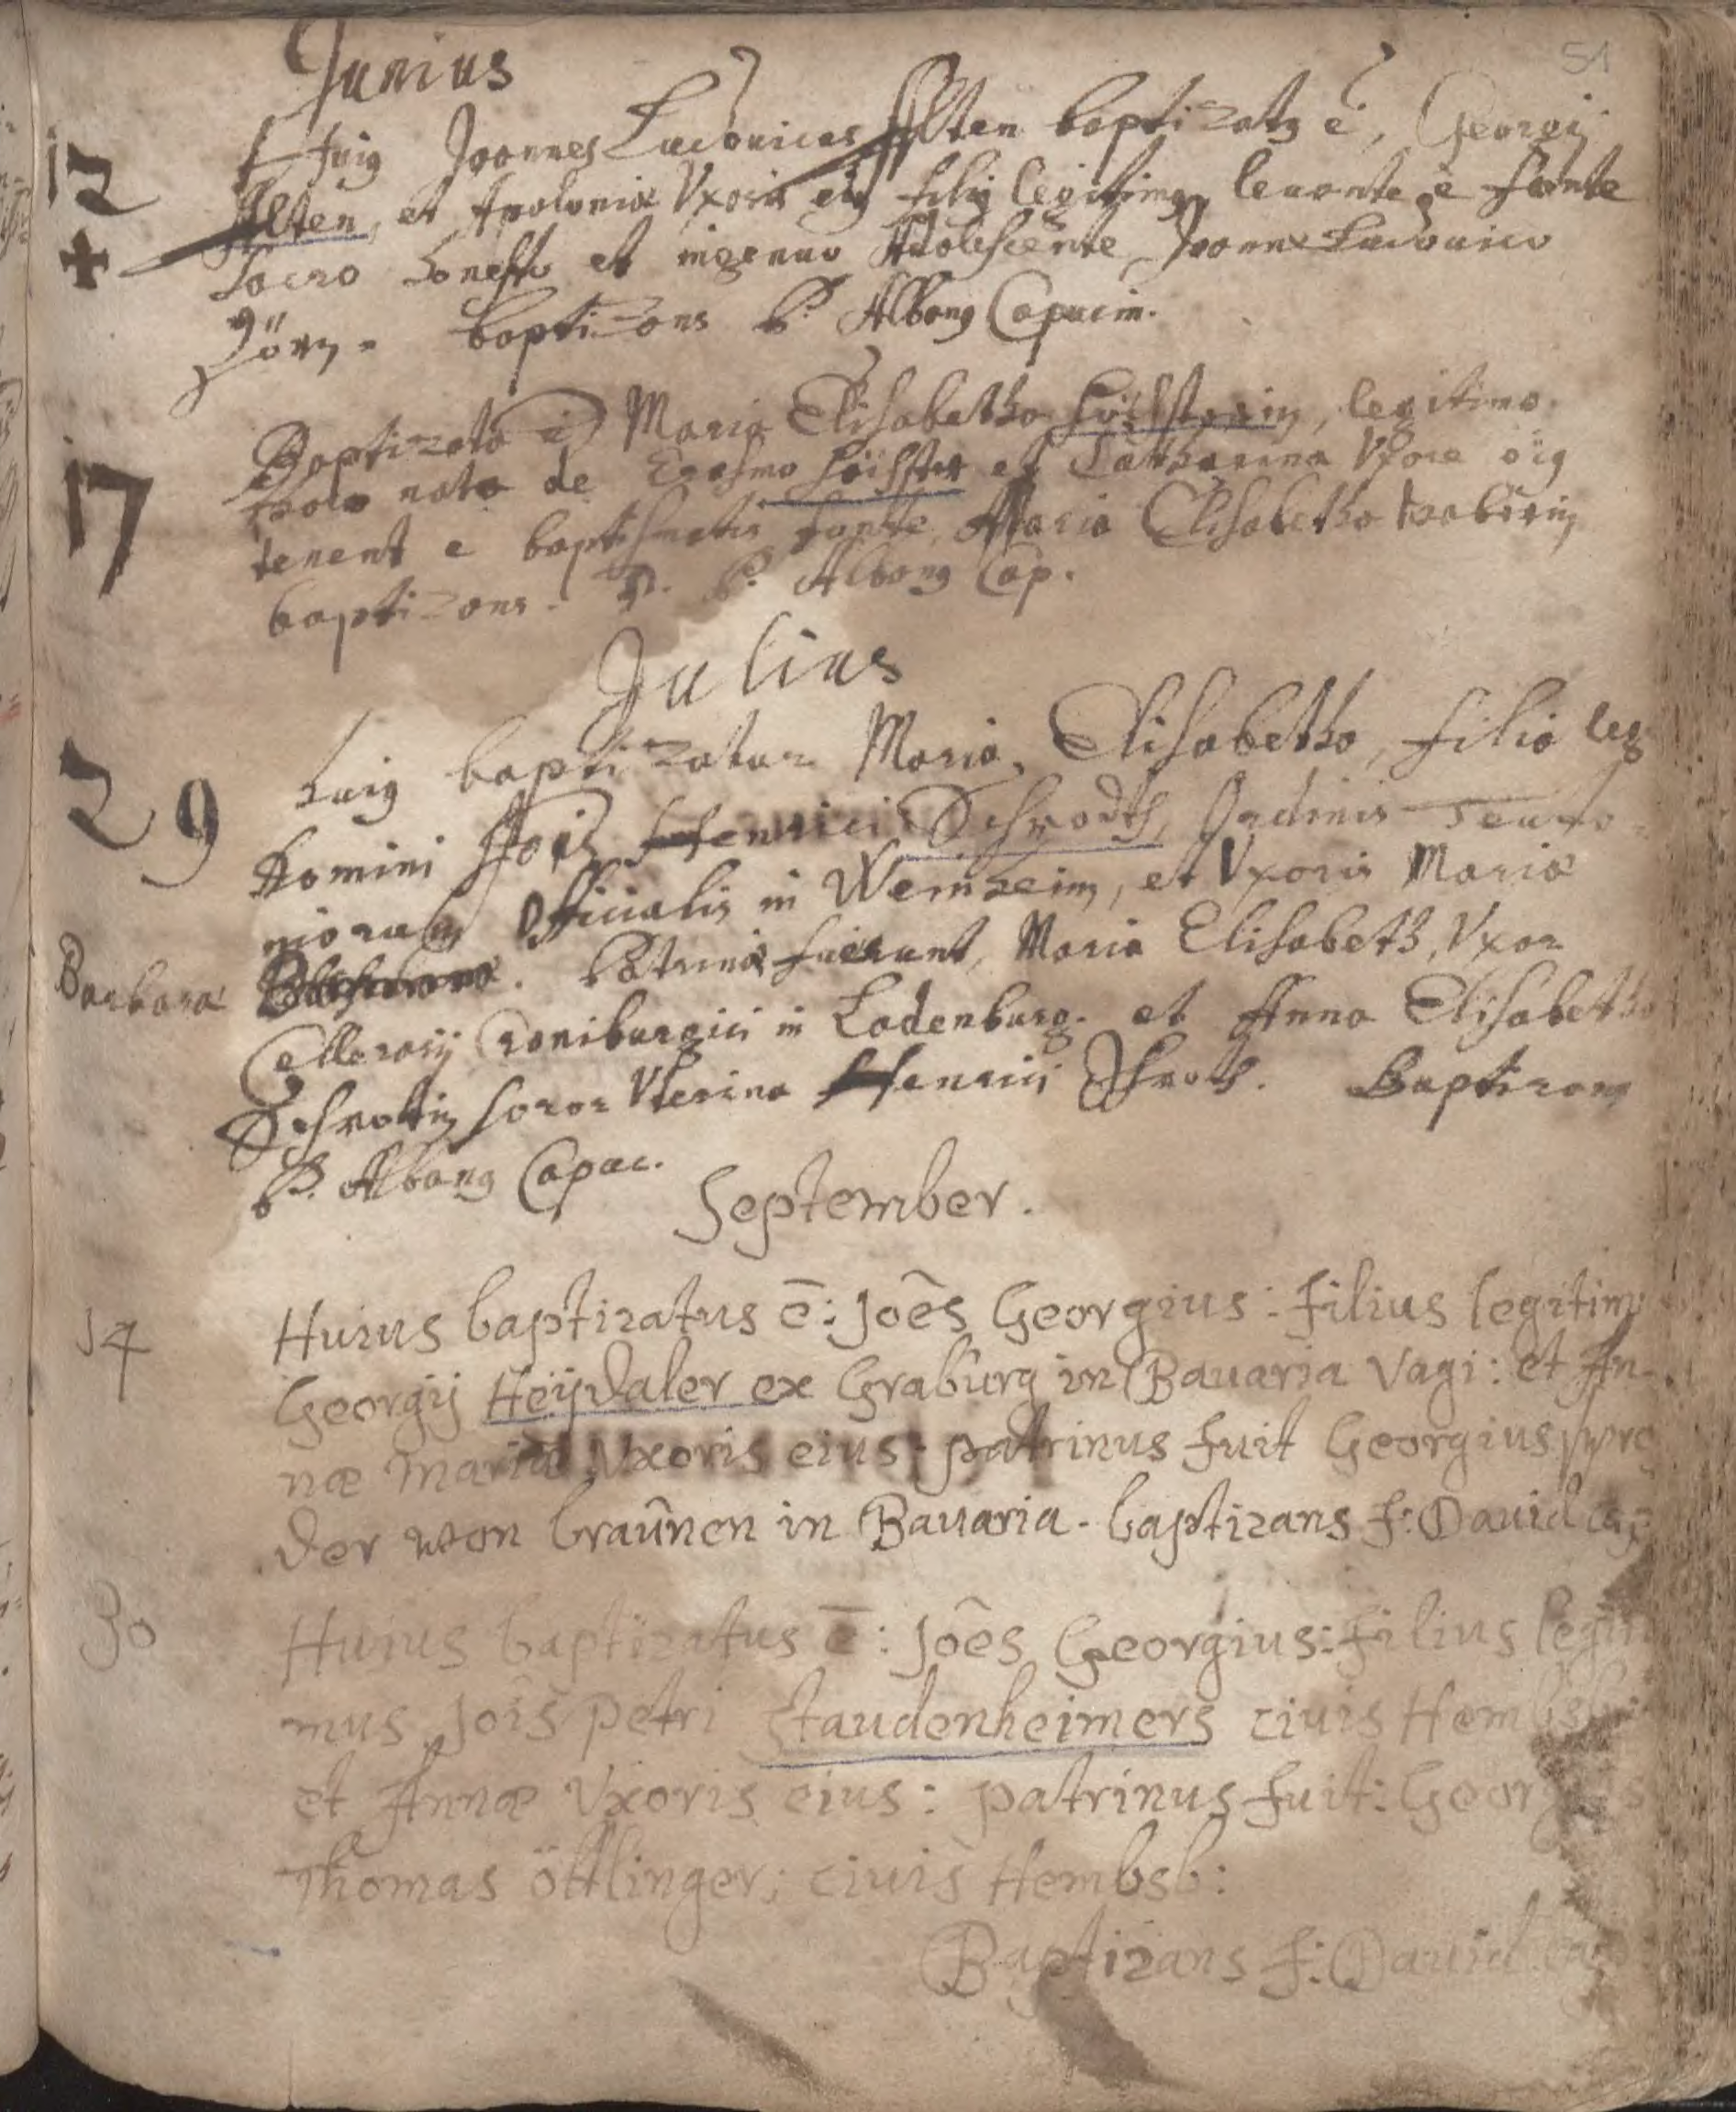 51
Junius
12 Huig Joannes Ludouicus Alten baptizatg ē, Georgij
Alten, et Apoloniæ Vxoris eig filig legitimg, leuante e fonte
+ sacro honesto et ingenuo Adolescente, Joanne Ludouico
baptizans P. Albang Capucin.
17 Baptizata ē Maria Elisabetha legitimo
thoro nata de Erasmo et Catharina Vxore eig
tenent e baptismatis fonte, Maria Elisabetha
baptizans. P. Albang Cap.
Julius
29 huig baptizatur Maria Elisabetha, filia leg
Domini Jois Henrici Schrodts, Ordinis Teuto-
Officialis in Weinheim, et Vxoris Mariæ
Barbaræ Patrinæ fuerunt, Maria Elisabeth, Vxor
Cellerarij Croniburgici in Ladenburg. et Anna Elisabetha
Schrotin soror Vterina Henrici Schroth. Baptizans
P. Albang Capuc.
September.
14 Huius baptizatus ē: Joēs Georgius: filius legitim
Georgij Heÿdaler ex Graburg in Bauaria Vagi: et An-
næ Mariæ Vxoris eius: patrinus fuit Georgius
der von braūnen in Bauaria. baptizans f: Dauid cap
30 Huius baptizatus ē: Joēs Georgius: filius legiti
mus Joīs petri staudenheimers ciuis Hembsb:
et Annæ Vxoris eius: patrinus fuit: Georgius
Thomas öttlinger; ciuis Hembsb:
Baptizans f: Dauid cap